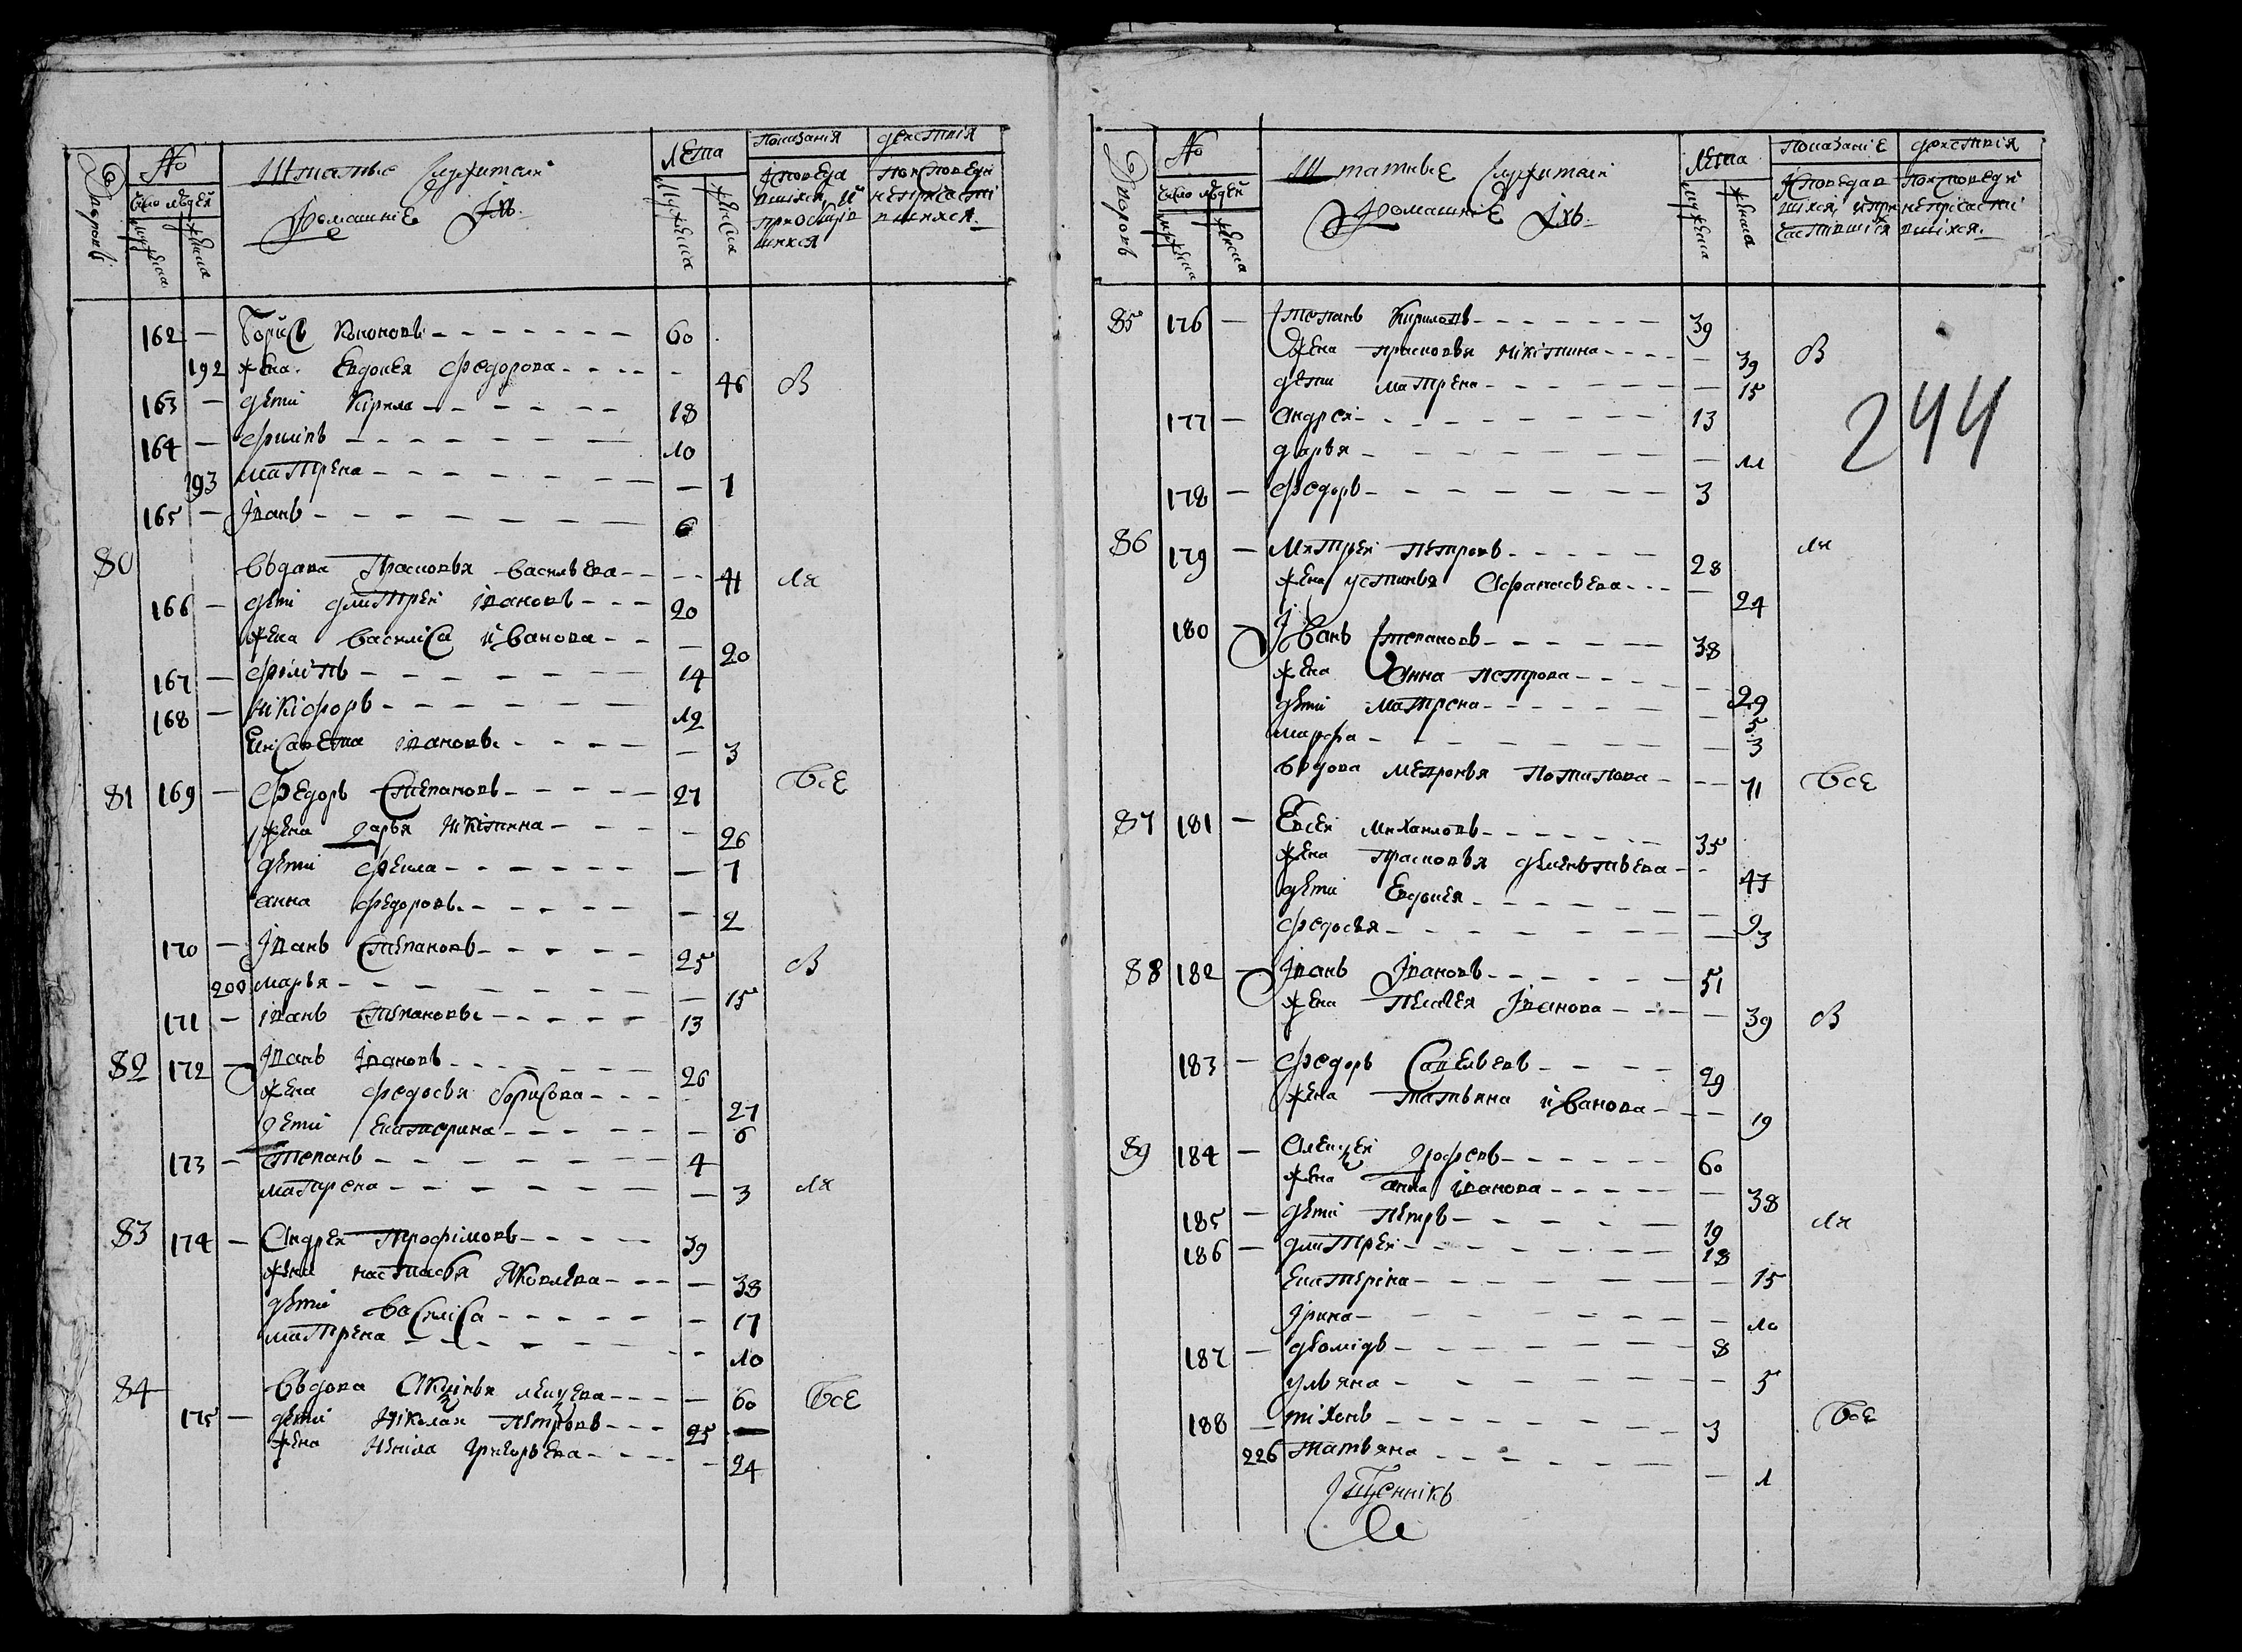 Дворовъ
№
число людей
мужеска
женска
Штатные служители
Домашние Ихъ
лета
Мужеска
женска
показания
действия
Исповеда
вшихся и
приобщи
шихся
по исповеди
непричасти
вшихся
162 — Борисъ Кононовъ 60
192 жена Евдокея Федорова — 46 В
163 — дети Кірила 18
164 — Филипъ 10
193 Матрена — 7
165 — Іванъ 6
80 Вдова Прасковья Васильева — 41 ля
166 — дети Дмитрей Івановъ 20
жена Василіса иванова — 20
167 — Филипъ 14
168 — Нікіфоръ 12
Елисавета івановъ — 3
81 169 — Федоръ Степановъ 27 Все
жена Дарья Нікітина — 26
дети Фекла — 7
анна федоровъ — 2
170 — Іванъ Степановъ 25 В
200 Марья — 15
171 — іванъ Степановъ 13
82 172 — Іванъ Івановъ 26
жена Федосья Борисова — 27
дети Екатерина — 6
173 — Степанъ 4
Матрена — 3 ля
83 174 — Андрей Трофімовъ 39
жена Настасья Яковлева — 38
дети Василіса — 17
Матрена — 10
84 Вдова Акулинья — 60 Все
175 — дети Николай Петровъ 25 —
жена Неніла Григорьева — 24
Дворовъ
№
число людей
мужеска
женска
Штатные служители
Домашние Ихъ
Лета
мужеска
женска
показаніе
действія
Исповедав
шихся и при
частившихся
по исповеди
непричасти
вшихся
85 176 — Степанъ Кириловъ 39
жена Прасковья Нікітина — 39 В
дети Матрена — 15
244
177 — Андрей 13
Дарья — 11
178 — Федоръ 3
86 179 — Митрей Петровъ 28 ля
жена Устинья Афанасьева — 24
180 — Иванъ Степановъ 38
жена Анна Петрова — 29
дети Матрена — 5
Марфа — 3
Вдова — 71 Все
87 181 — Евсей Михаиловъ 35
жена Прасковья Дементьева — 47
дети Евдокея — 9
Федосья — 3
88 182 — Іванъ Івановъ 51
жена Пелагея Іванова — 39 В
183 — Федоръ Савельевъ 29
жена Татьяна иванова — 19
89 184 — Алексей 60
жена анна іванова — 38
185 — дети Петръ 19 ля
186 — Дмитрей 18
Екатеріна — 15
Ірина — 10
187 — Деомідъ 8
Ульяна — 5
188 — Тіхонъ 3 Все
226 Татьяна — 1